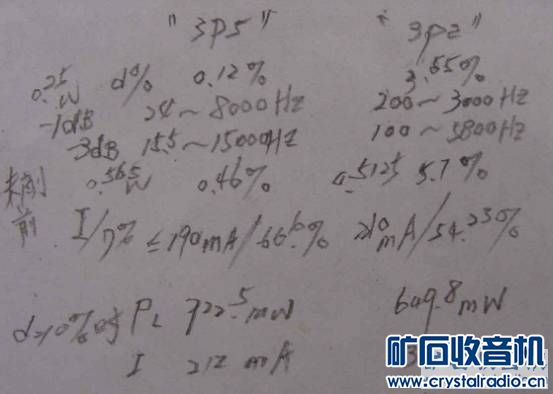 "3P5" "3P2"
0.25W d% 0.12% 3.65%
-1dB 24~8000HZ 200~3000HZ
-3dB 15.5~15000HZ 100~5800HZ
未削前 0.565W 0.46% 0.5125 5.7%
I/η% ≤190mA/66.6% 210mA/54.25%
d=10%时 PL 722.5mW 649.8mW
I 212mA
矿石收音机
www.crystalradio.cn